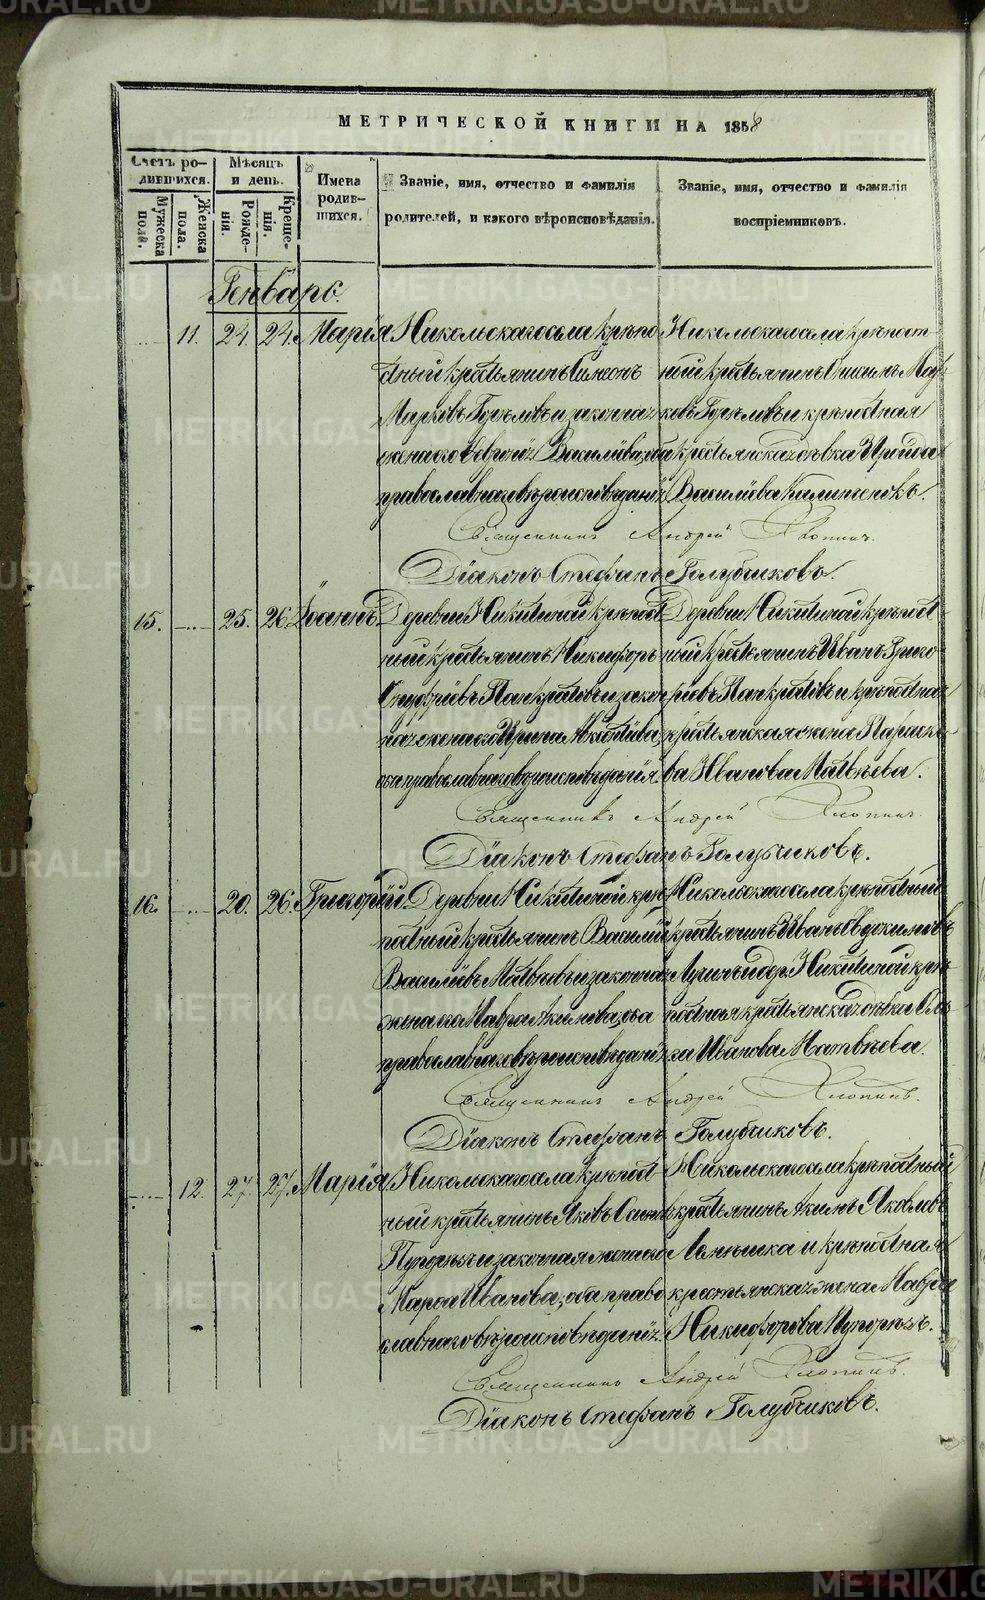 METRIKI.GASO-URAL.RU
МЕТРИЧЕСКОЙ КНИГИ НА 1858
Счетъ родившихся.
Мужеска полѣ.
Женска пола.
Мѣсяцъ и день.
Рожденія.
Крещенія.
Имена родившихся.
Званіе, имя, отчество и фамилія
родителей, и какого вѣроисповѣданія.
Званіе, имя, отчество и фамилія
воспріемниковъ.
Генварь.
11. 24. 24. Марія
Никольскаго села крѣпо
стный крестьянинъ Симеонъ
Марковъ и законная
жена его Васильева, оба
православнаго вѣроисповѣданія
Никольскаго села крѣпост
ный крестьянинъ Мар
ковъ и крѣпостная
крестьянская дѣвка
Васильева
Священникъ Андрей Хлопинъ.
Діаконъ Стефанъ Голубчиковъ.
15. 25. 26. Іоаннъ
Деревни Никитиной крѣпост
ный крестьянинъ Никифоръ
Онуфріевъ Панкратовъ и закон
ная жена его Ирина
православнаго вѣроисповѣданія
Деревни Никитиной крѣпост
ный крестьянинъ Иванъ Григо
рьевъ Панкратовъ и крѣпостная
крестьянская жена Параске
ва Иванова Матвѣева.
Священникъ Андрей Хлопинъ.
Діаконъ Стефанъ Голубчиковъ.
16. 20. 26. Григорій
Деревни Никитиной крѣ
постный крестьянинъ Василій
Васильевъ Матвѣевъ и законная
жена его Мавра Акимова, оба
православнаго вѣроисповѣданія
Никольскаго села крѣпостный
крестьянинъ Иванъ Евдокимовъ
и дер. Никитиной крѣ
постная крестьянская дѣвка Ели
за Иванова Матвѣева.
Священникъ Андрей Хлопинъ.
Діаконъ Стефанъ Голубчиковъ.
12. 27. 27. Марія
Никольскаго села крѣпост
ный крестьянинъ Яковъ
Пупорѣзъ и законная жена его
Марѳа Иванова, оба право
славнаго вѣроисповѣданія.
Никольскаго села крѣпостный
крестьянинъ Акимъ Яковлевъ
и крѣпостная
крестьянская жена Мавра
Никифорова Пупорѣзъ.
Священникъ Андрей Хлопинъ.
Діаконъ Стефанъ Голубчиковъ.